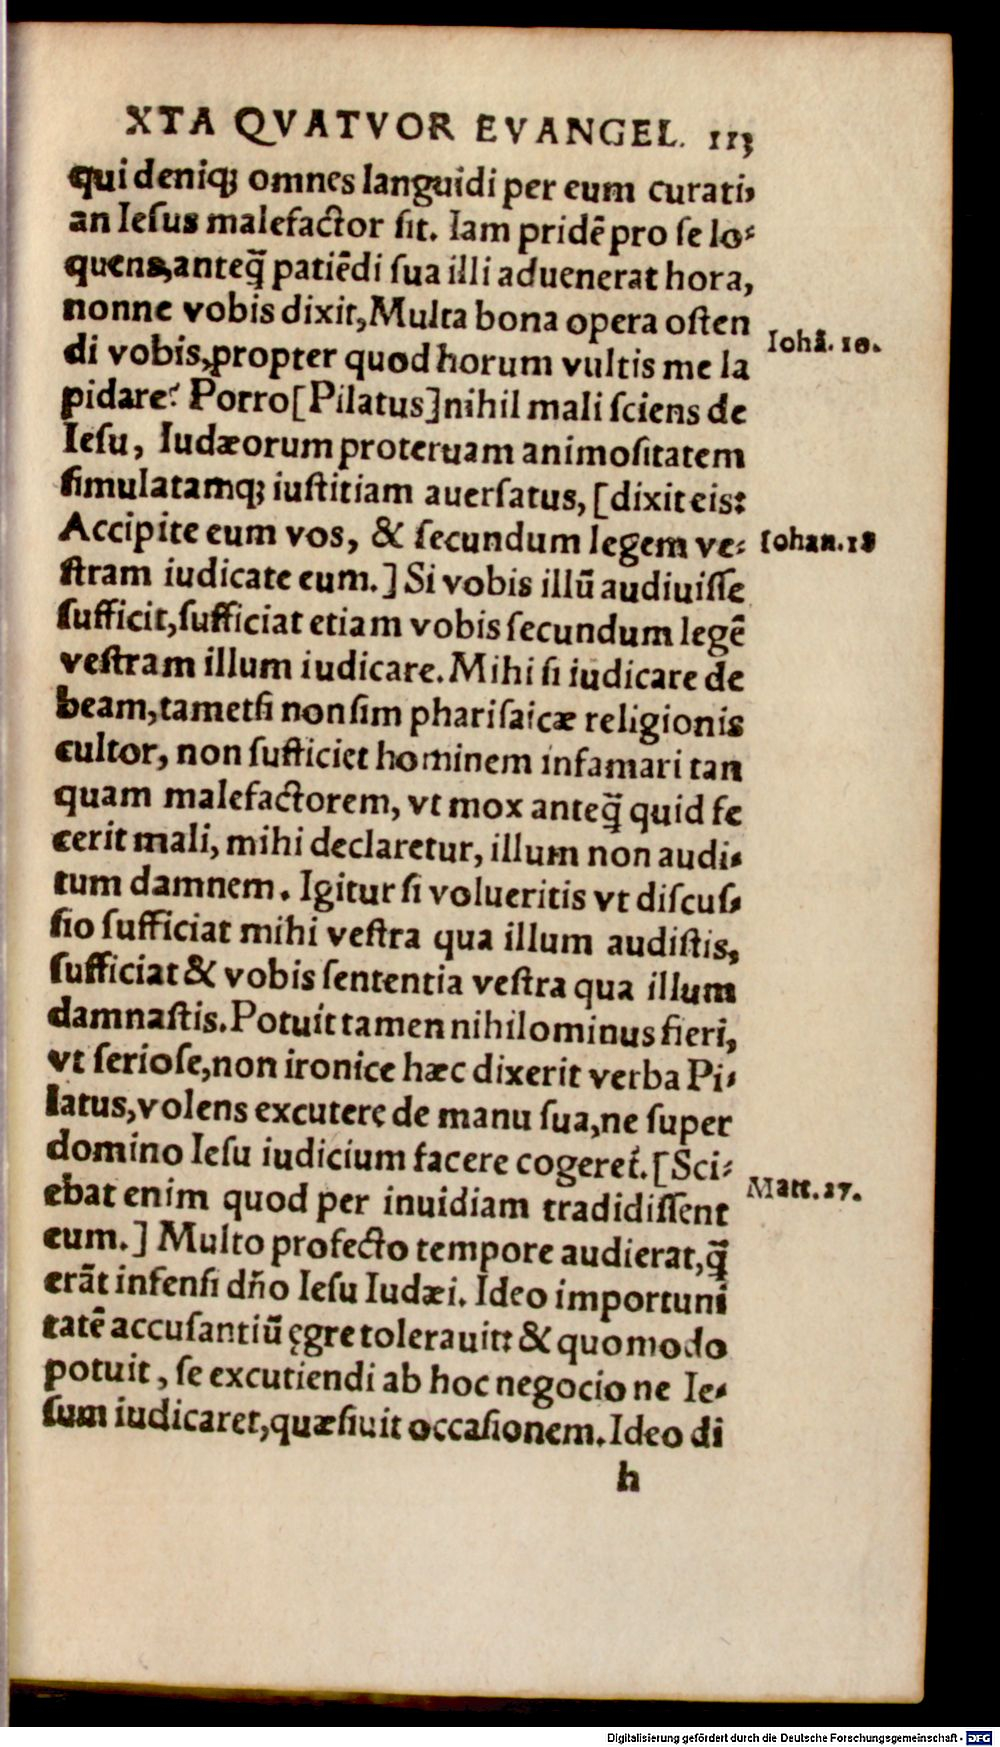 XTA QVATVOR EVANGEL. 113
qui deniq; omnes languidi per eum curati,
an Iesus malefactor sit. Iam pridē pro se lo-
quens, anteq̃ patiēdi sua illi aduenerat hora,
nonne vobis dixit, Multa bona opera osten
di vobis, propter quod horum vultis me la
Iohā. 10.
pidare? Porro [Pilatus] nihil mali sciens de
Iesu, Iudæorum proteruam animositatem
simulatamq; iustitiam auersatus, [dixit eis:
Accipite eum vos, & secundum legem ve-
Iohan. 18
stram iudicate eum.] Si vobis illū audiuisse
sufficit, sufficiat etiam vobis secundum legē
vestram illum iudicare. Mihi si iudicare de
beam, tametsi non sim pharisaicæ religionis
cultor, non sufficiet hominem infamari tan
quam malefactorem, vt mox anteq̃ quid fe
cerit mali, mihi declaretur, illum non audi-
tum damnem. Igitur si volueritis vt discus-
sio sufficiat mihi vestra qua illum audistis,
sufficiat & vobis sententia vestra qua illum
damnastis. Potuit tamen nihilominus fieri,
vt seriose, non ironice hæc dixerit verba Pi-
latus, volens excutere de manu sua, ne super
domino Iesu iudicium facere cogeret. [Sci-
ebat enim quod per inuidiam tradidissent
Matt. 27.
eum.] Multo profecto tempore audierat, q̃
erāt infensi dño Iesu Iudæi. Ideo importuni
tatē accusantiū ęgre tolerauit: & quomodo
potuit, se excutiendi ab hoc negocio ne Ie-
sum iudicaret, quæsiuit occasionem. Ideo di
h
Digitalisierung gefördert durch die Deutsche Forschungsgemeinschaft - DFG